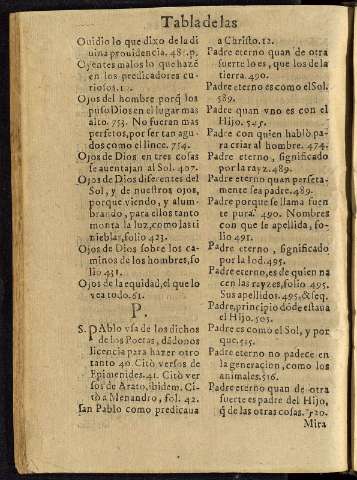 Tabla de las
Ouidio lo que dixo de la di
uina prouidencia. 485. p,
Oyentes malos lo que hazé
en los predicadores cu-
riosos. 12.
Ojos del hombre porq̃ los
puso Dios en el lugar mas
alto. 753. No fueran mas
perfetos, por ser tan agu-
dos como el lince. 754.
Ojos de Dios en tres cosas
se auentajan al Sol. 407.
Ojos de Dios diferentes del
Sol, y de nuestros ojos,
porque viendo, y alum-
brando, para ellos tanto
monta la luz, como las ti
nieblas, folio 423.
Ojos de Dios sobre los ca-
minos de los hombres, fo
lio 431.
Ojos de la equidad, el que lo
vea todo. 61.
P.
S. PAblo vsa de los dichos
de los Poetas, dádonos
licencia para hazer otro
tanto 40. Citò versos de
Epimenides. 41. Citò ver
sos de Arato, ibidem. Ci-
tò a Menandro, fol. 42.
san Pablo como predicaua
a Christo. 12.
Padre eterno quan de otra
suerte lo es, que los de la
tierra. 490.
Padre eterno es como el Sol.
589.
Padre quan vno es con el
Hijo. 525.
Padre con quien hablò pa-
ra criar al hombre. 474.
Padre eterno, significado
por la rayz. 489.
Padre eterno quan perfeta-
mente sea padre. 489.
Padre porque se llama fuen
te pura. 490. Nombres
con que se apellida, fo-
lio. 491.
Padre eterno, significado
por la Iod. 495.
Padre eterno, es de quien na
cen las rayzes, folio 495.
Sus apellidos. 495, & seq.
Padre, principio dóde estaua
el Hijo. 503.
Padre es como el Sol, y por
que. 515.
Padre eterno no padece en
la generacion, como los
animales. 516.
Padre eterno quan de otra
suerte es padre del Hijo,
q̃ de las otras cosas. 520.
Mira